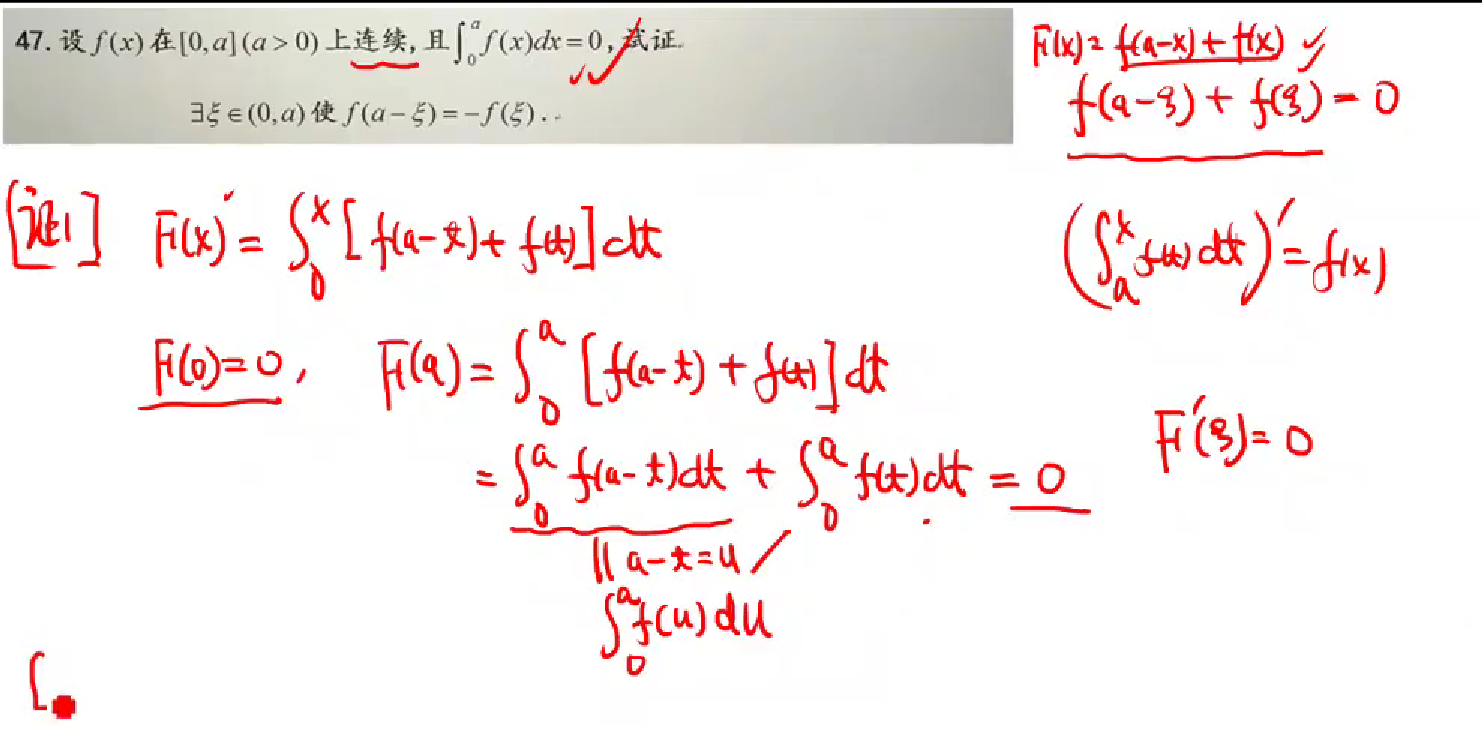 47. 设 f(x) 在 [0,a] (a>0) 上连续, 且∫₀ᵃ f(x)dx=0, 试证.
∃ξ∈(0,a) 使 f(a−ξ)=−f(ξ).
F(x)= f(a-x)+f(x) ✓
f(a-ξ)+f(ξ)=0
[证1] F(x)=∫₀ˣ[f(a-t)+f(t)]dt
(∫ₐˣ f(t)dt)′=f(x)
F(0)=0, F(a)=∫₀ᵃ[f(a-t)+f(t)]dt
=∫₀ᵃ f(a-t)dt+∫₀ᵃ f(t)dt=0
F′(ξ)=0
|| a-t=u
∫₀ᵃ f(u)du
[